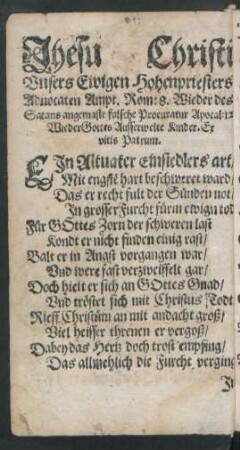 Jhesu Christi
Vnsers Ewigen Hohenpriesters
Aduocaten Ampt. Röm: 8. Wieder des
Satans angemaste falsche Procuratur Apocal: 12
Wieder Gottes Ausserwelte Kinder. Ex
vitis Patrum.
EIn Altuater einsiedlers art/
Mit engste hart beschweret ward/
Das er recht fult der Sünden not/
In grosser Furcht fürm ewign tod
Für GOttes Zorn der schweren last
Kondt er nicht finden einig rast/
Balt er in Angst vorgangen war/
Vnd were fast verzweiffelt gar/
Doch hielt er sich an GOttes Gnad/
Vnd tröstet sich mit Christus Todt
Rieff Christum an mit andacht groß/
Viel heisser threnen er vergoß/
Dabey das Hertz doch trost empfing/
Das allmehlich die Furcht verging